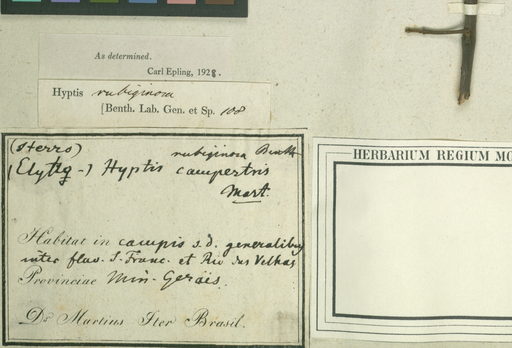 As determined.
Carl Epling, 1928.
Hyptis rubiginosa
[Benth. Lab. Gen. et Sp. 108
(sterro)
rubiginosa Benth
-) Hyptis campestris
Mart.
Habitat in campis s.d. generalibus
inter fluv. S. Franc. et Rio das Velhas
Provinciae Min. Geraës.
Dr Martius Iter Brasil.
HERBARIUM REGIUM MO